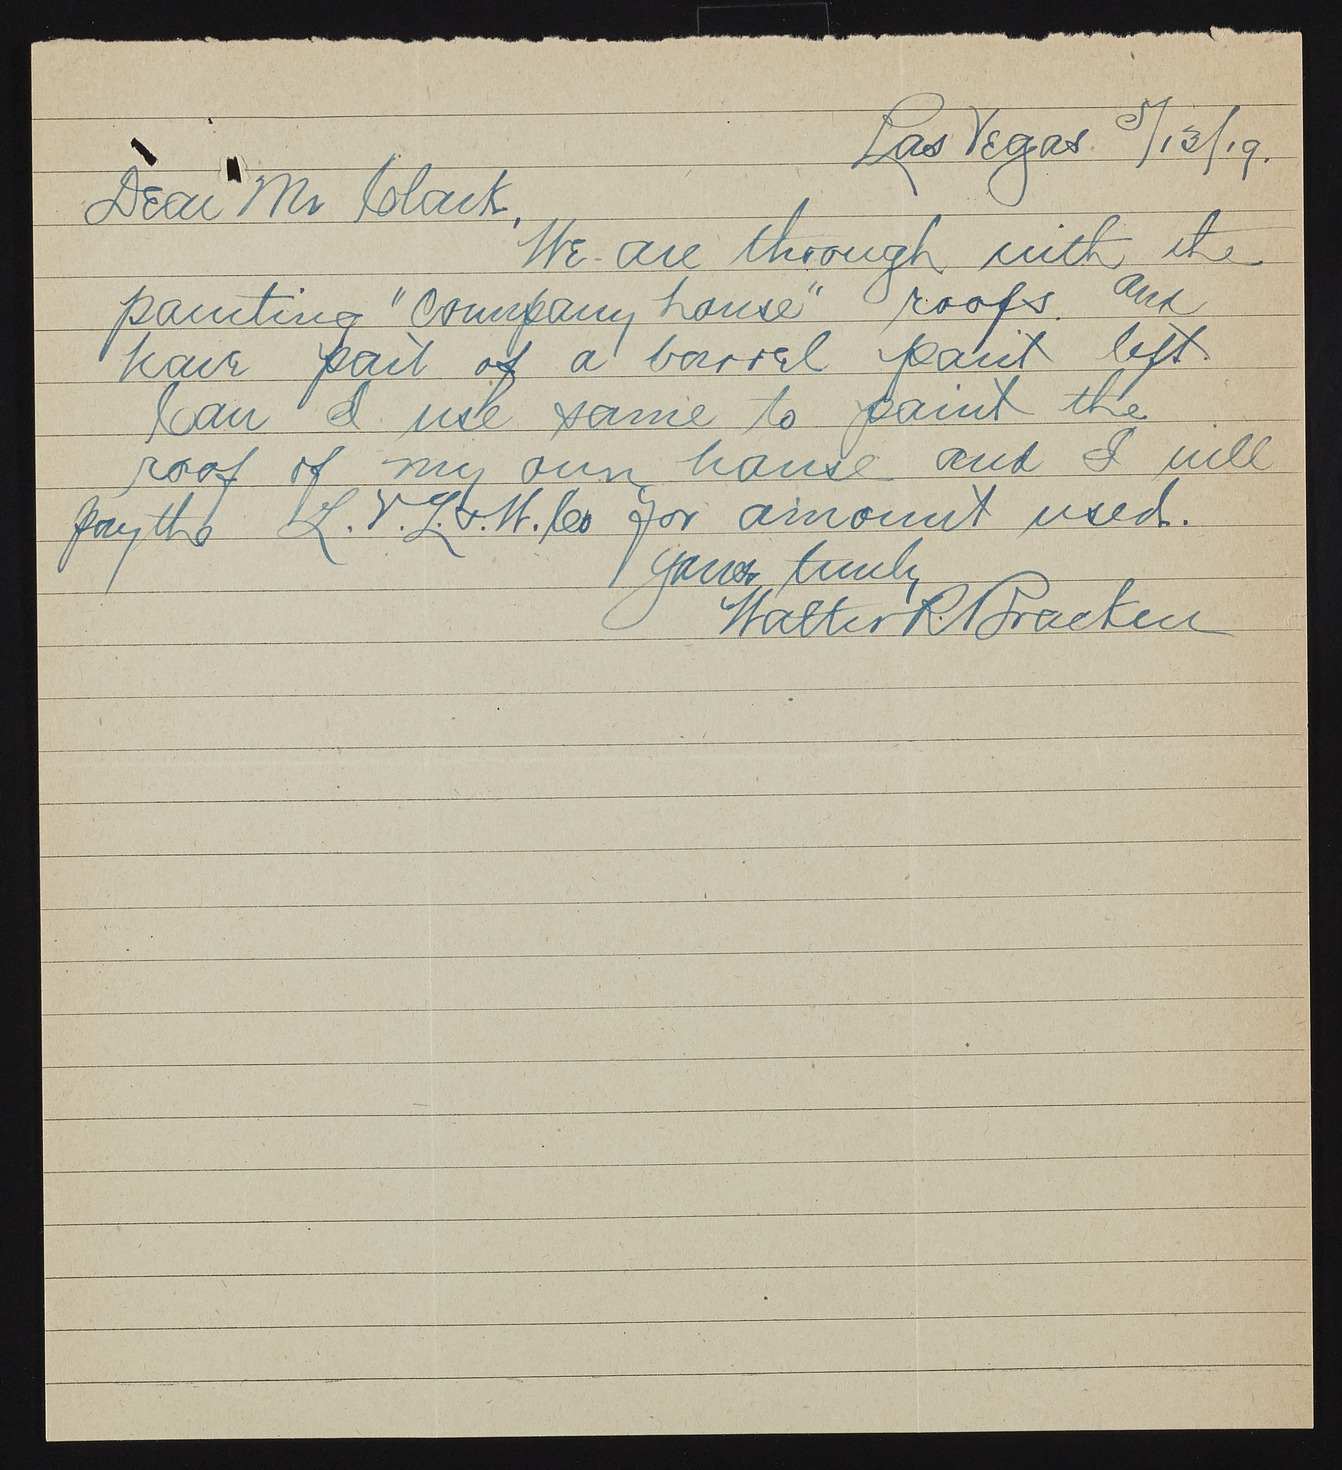 Las Vegas 5/13/19.
Dear Mr Clark,
We are through with the
painting "Company house" roofs. and
have part of a barrel paint left.
Can I use same to paint the
roof of my own house and I will
pay the L.V.L.&.W. Co for amount used.
yours truely
Walter R. Bracken